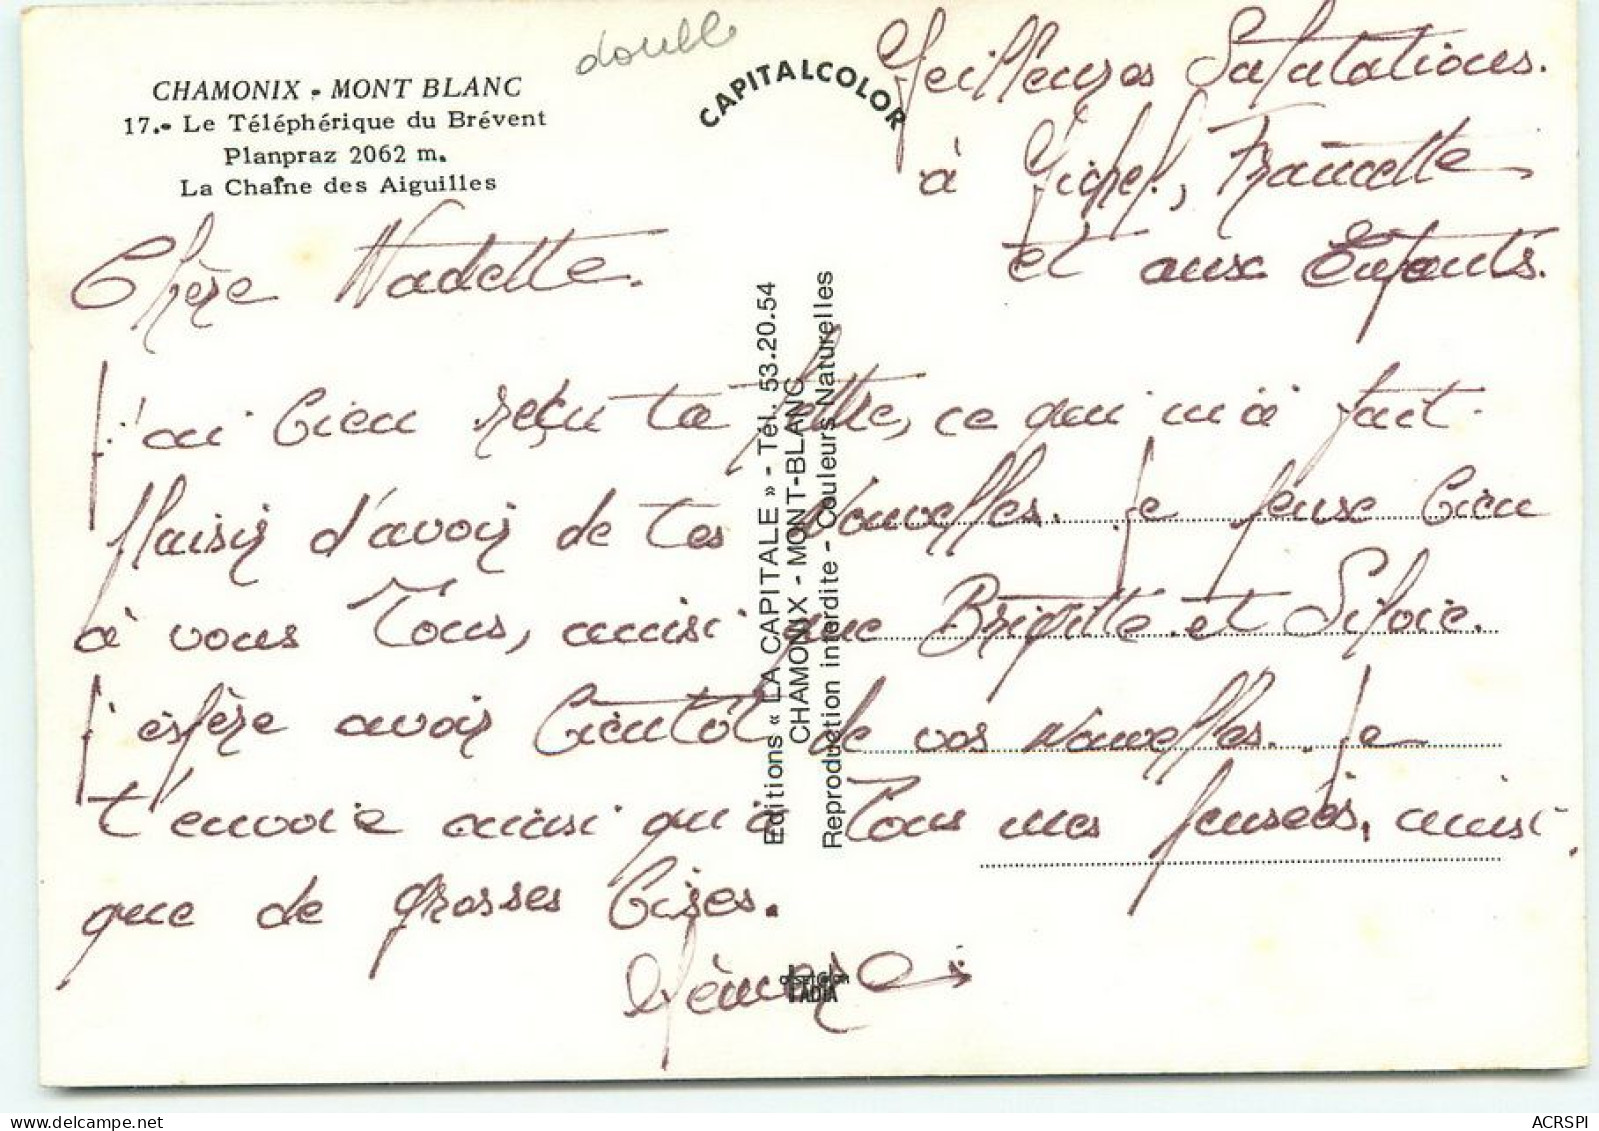 double
CHAMONIX - MONT BLANC
17.- Le Téléphérique du Brévent
Planpraz 2062 m.
La Chaîne des Aiguilles
CAPITALCOLOR
Meilleures Salutations.
à Michel, Francette
et aux Enfants.
Chère Nadette.
J'ai bien reçu ta lettre, ce qui m'a fait
plaisir d'avoir de tes Nouvelles. Je pense bien
à vous Tous, ainsi que Brigitte et Silvie.
J'espère avoir bientôt de vos Nouvelles. Je
t'envoie ainsi qu'à Tous mes pensées, ainsi
que de grosses bises.
Mémère
Editions « LA CAPITALE » - Tél. 53.20.54
CHAMONIX - MONT-BLANC
Reproduction interdite - Couleurs Naturelles
ACRSPI